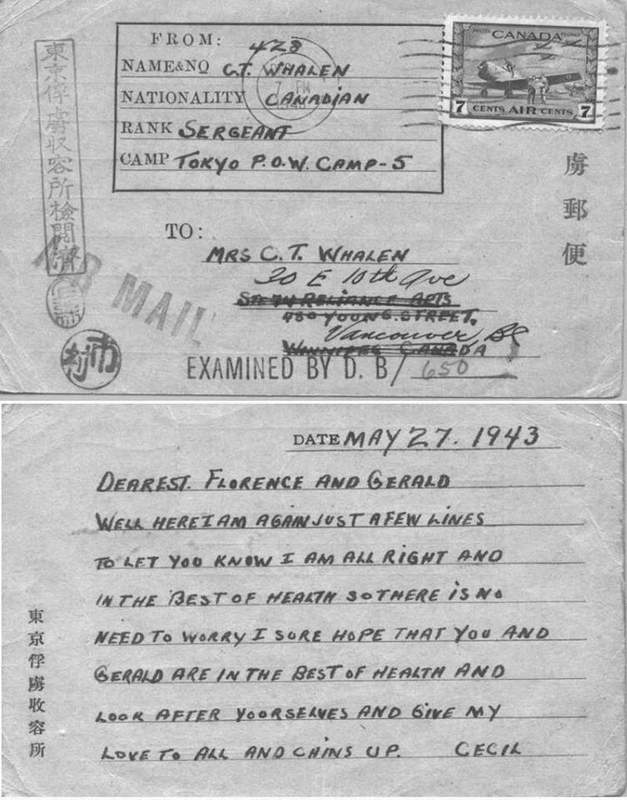 FROM:
428
NAME&NO C.T. WHALEN
NATIONALITY CANADIAN
RANK SERGEANT
CAMP TOKYO P.O.W. CAMP-5
CANADA
7 CENTS AIR CENTS 7
東京俘虜収容所検閲濟
俘虜郵便
TO:
MRS C. T. WHALEN
30 E 10th Ave
RELIANCE APTS
480 YOUNG. STREET,
Vancouver, BC
WINNIPEG CANADA
AIR MAIL
EXAMINED BY D. B/ 650
DATE MAY 27. 1943
DEAREST. FLORENCE AND GERALD
WELL HERE I AM AGAIN JUST A FEW LINES
TO LET YOU KNOW I AM ALL RIGHT AND
IN THE BEST OF HEALTH SO THERE IS NO
NEED TO WORRY I SURE HOPE THAT YOU AND
GERALD ARE IN THE BEST OF HEALTH AND
LOOK AFTER YOORSELVES AND GIVE MY
LOVE TO ALL AND CHINS UP. CECIL
東京俘虜收容所